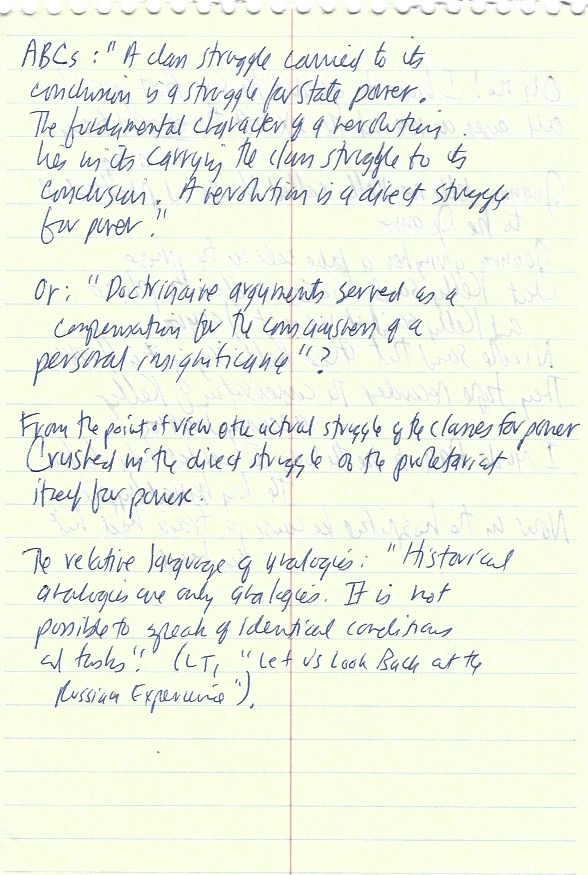 ABCs: "A class struggle carried to its
conclusion is a struggle for state power.
The fundamental character of a revolution
lies in its carrying the class struggle to its
conclusion. A revolution is a direct struggle
for power."
Or: "Doctrinaire arguments served as a
compensation for the consciousness of a
personal insignificance"?
From the point of view of the actual struggle of the classes for power
Crushed in the direct struggle of the proletariat
itself for power.
The relative language of analogies: "Historical
analogies are only analogies. It is not
possible to speak of identical conditions
and tasks". (LT, "Let Us Look Back at the
Russian Experience").